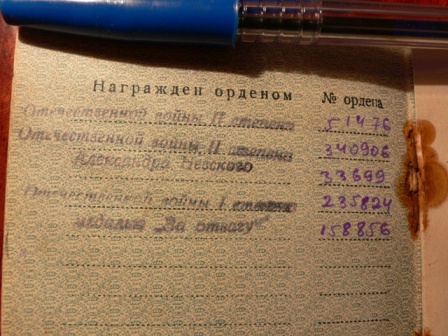 Награжден орденом № ордена
Отечественной войны II степени 51476
Отечественной войны II степени 340906
Александра Невского 33699
Отечественной войны I степени 235824
медалью „За отвагу" 158856